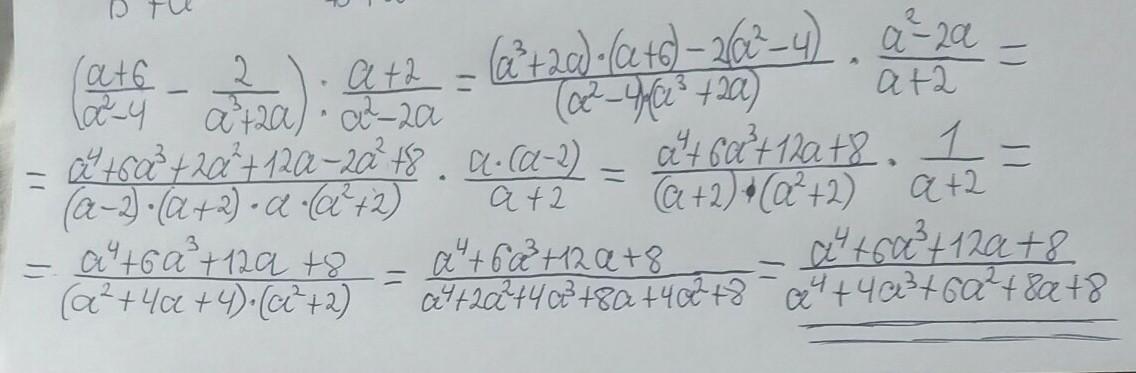 (a+6/a²-4 - 2/a³+2a) : a+2/a²-2a = (a³+2a)·(a+6)-2(a²-4)/(a²-4)·(a³+2a) · a²-2a/a+2 =
= a⁴+6a³+2a²+12a-2a²+8/(a-2)·(a+2)·a·(a²+2) · a·(a-2)/a+2 = a⁴+6a³+12a+8/(a+2)·(a²+2) · 1/a+2 =
= a⁴+6a³+12a+8/(a²+4a+4)·(a²+2) = a⁴+6a³+12a+8/a⁴+2a²+4a³+8a+4a²+8 = a⁴+6a³+12a+8/a⁴+4a³+6a²+8a+8